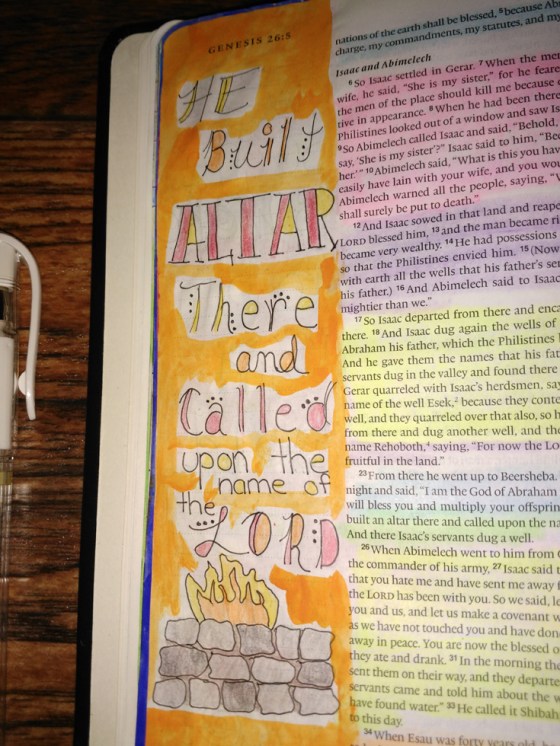 GENESIS 26:5
HE
Built
ALTAR
There
and
Called
upon the
name of
the
LORD
nations of the earth shall be blessed, 5because
charge, my commandments, my statutes, and
Isaac and Abimelech
6So Isaac settled in Gerar. 7When the
wife, he said, "She is my sister," for he
the men of the place should kill me because
tive in appearance. 8When he had been there
Philistines looked out of a window and saw
9So Abimelech called Isaac and said, "Behold,
say, 'She is my sister'?" Isaac said to him,
her.'" 10Abimelech said, "What is this you
easily have lain with your wife, and you
Abimelech warned all the people, saying,
shall surely be put to death."
12And Isaac sowed in that land and
LORD blessed him, 13and the man became
became very wealthy. 14He had possessions
so that the Philistines envied him. 15(Now
with earth all the wells that his father's
his father.) 16And Abimelech said to Isaac
mightier than we."
17So Isaac departed from there and
there. 18And Isaac dug again the wells of
Abraham his father, which the Philistines
And he gave them the names that his
servants dug in the valley and found there
Gerar quarreled with Isaac's herdsmen,
name of the well Esek,2 because they
well, and they quarreled over that also, so
from there and dug another well, and
name Rehoboth,4 saying, "For now the
fruitful in the land."
23From there he went up to Beersheba.
night and said, "I am the God of Abraham
will bless you and multiply your
built an altar there and called upon the
And there Isaac's servants dug a well.
26When Abimelech went to him from
the commander of his army, 27Isaac said
that you hate me and have sent me away
the LORD has been with you. So we said,
you and us, and let us make a covenant
as we have not touched you and have
away in peace. You are now the blessed
they ate and drank. 31In the morning
sent them on their way, and they
servants came and told him about the
have found water." 33He called it Shibah
to this day.
34When Esau was forty years old,